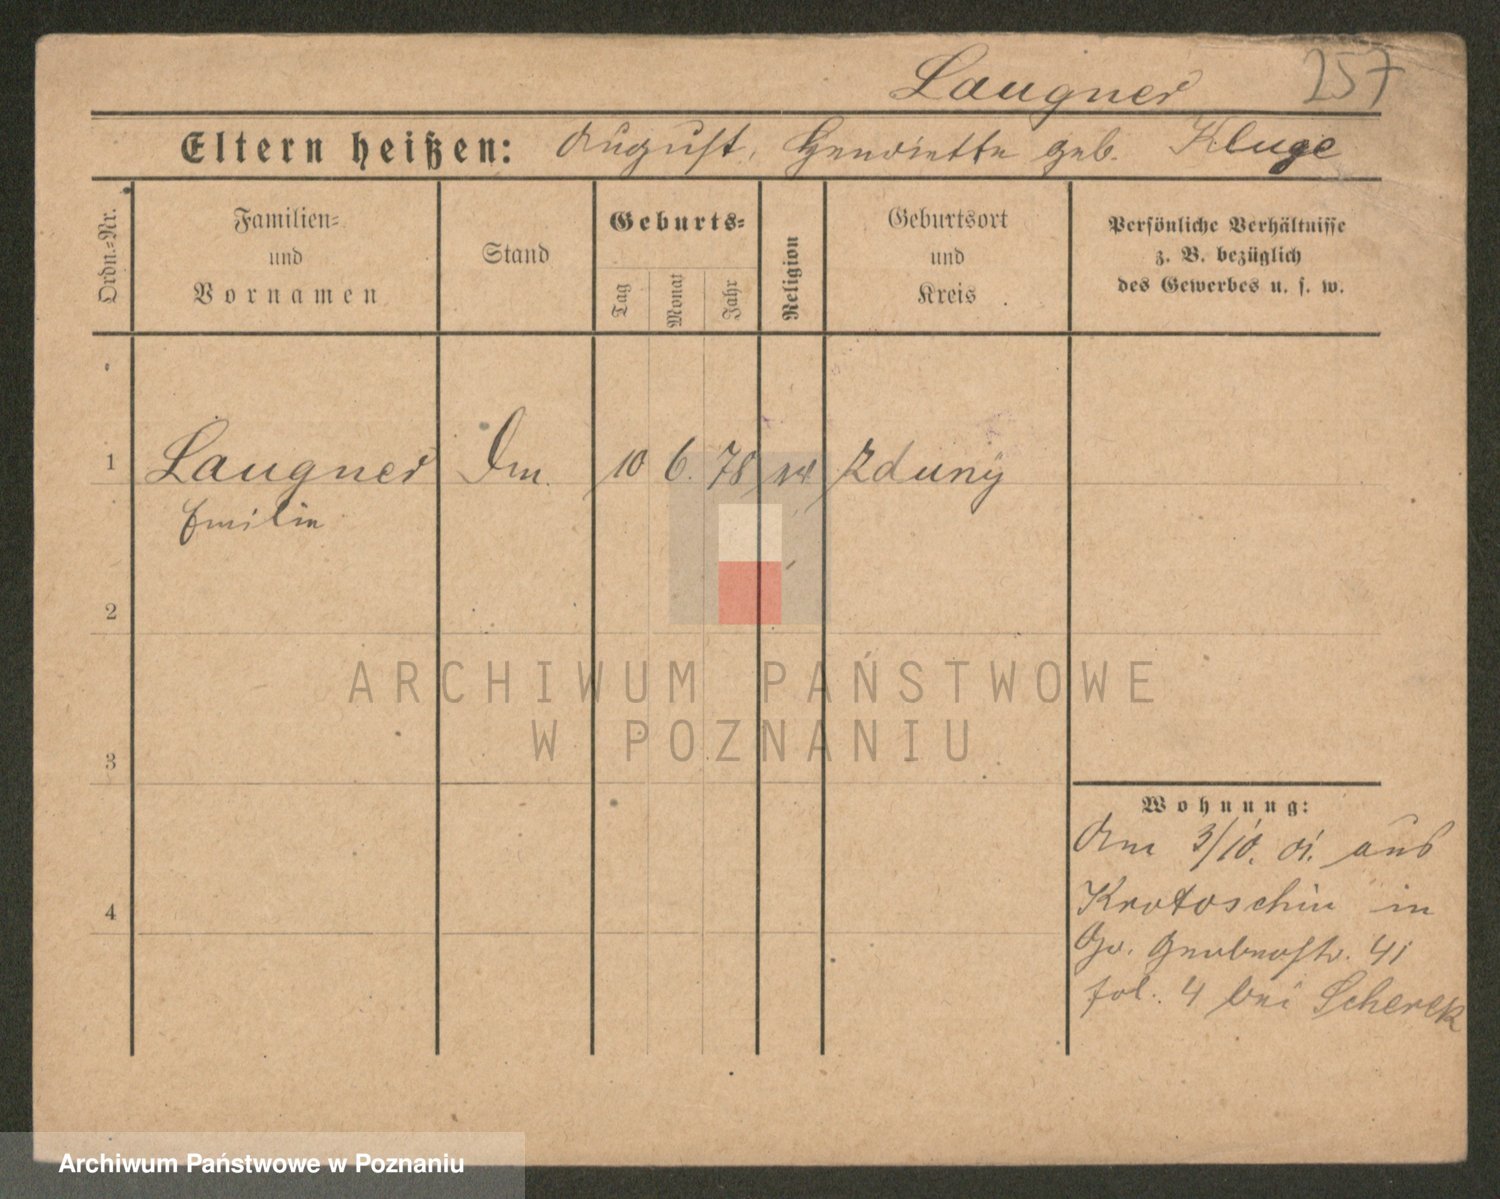 Laugner 257
Eltern heißen: August, Henriette geb. Kluge
Ordn.=Nr.
Familien=
und
Vornamen
Stand
Geburts=
Tag
Monat
Jahr
Religion
Geburtsort
und
Kreis
Persönliche Verhältnisse
z. B. bezüglich
des Gewerbes u. s. w.
1 Laugner 10 6. 78 Zduny
Emilie
2
ARCHIWUM PAŃSTWOWE
W POZNANIU
3
Wohnung:
3/10. 01. aus
4
Krotoschin in
41
fol. 4 bei Scherek
Archiwum Państwowe w Poznaniu